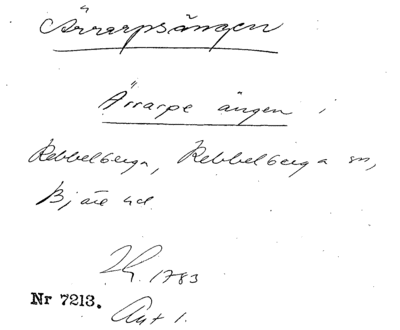 Ärrarpsängen
Ärrarpe ängen i
Rebbelberga, Rebbelberga sn,
Bjäre hd.
1783
Nr 7213. Akt 1.